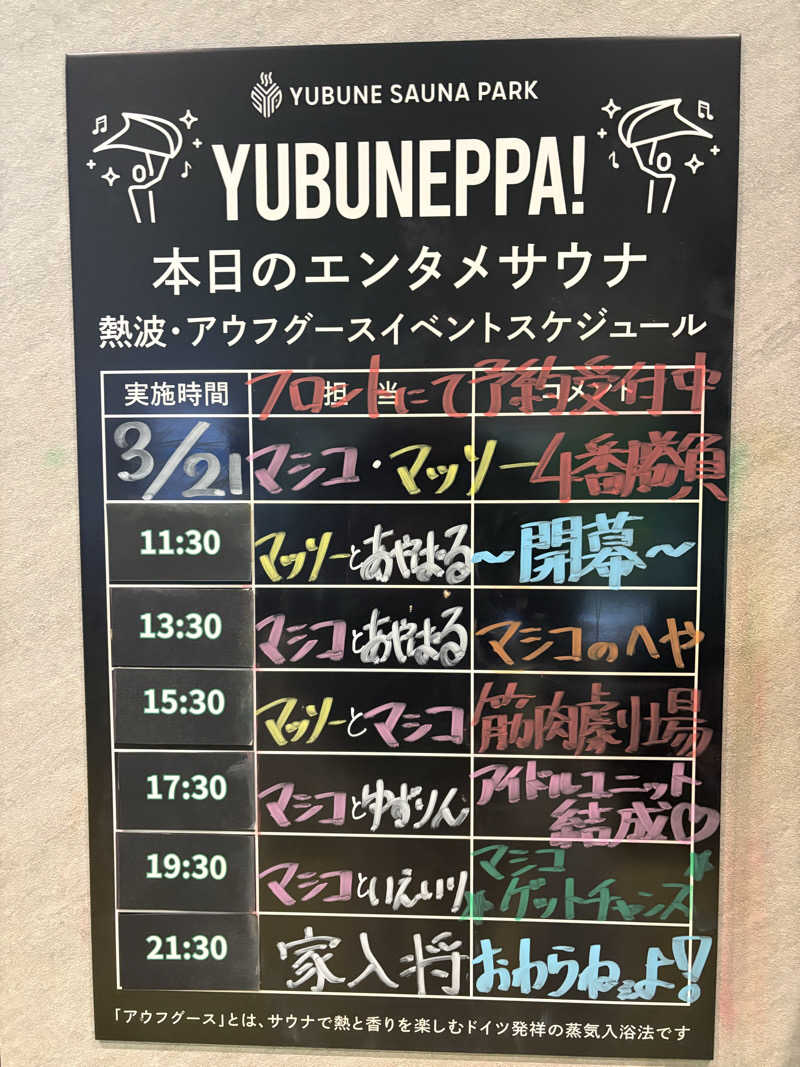 YUBUNE SAUNA PARK
YUBUNEPPA!
本日のエンタメサウナ
熱波・アウフグースイベントスケジュール
実施時間 担当 コメント
フロントにて予約受付中
3/21 マシコ・マッソー4番勝負
11:30 マッソーとあやはる ~開幕~
13:30 マシコとあやはる マシコのへや
15:30 マッソーとマシコ 筋肉劇場
17:30 マシコとゆずりん アイドルユニット
結成♡
19:30 マシコといえいり マシコ
ゲットチャンス
21:30 家入将 おわらねーよ!
「アウフグース」とは、サウナで熱と香りを楽しむドイツ発祥の蒸気入浴法です